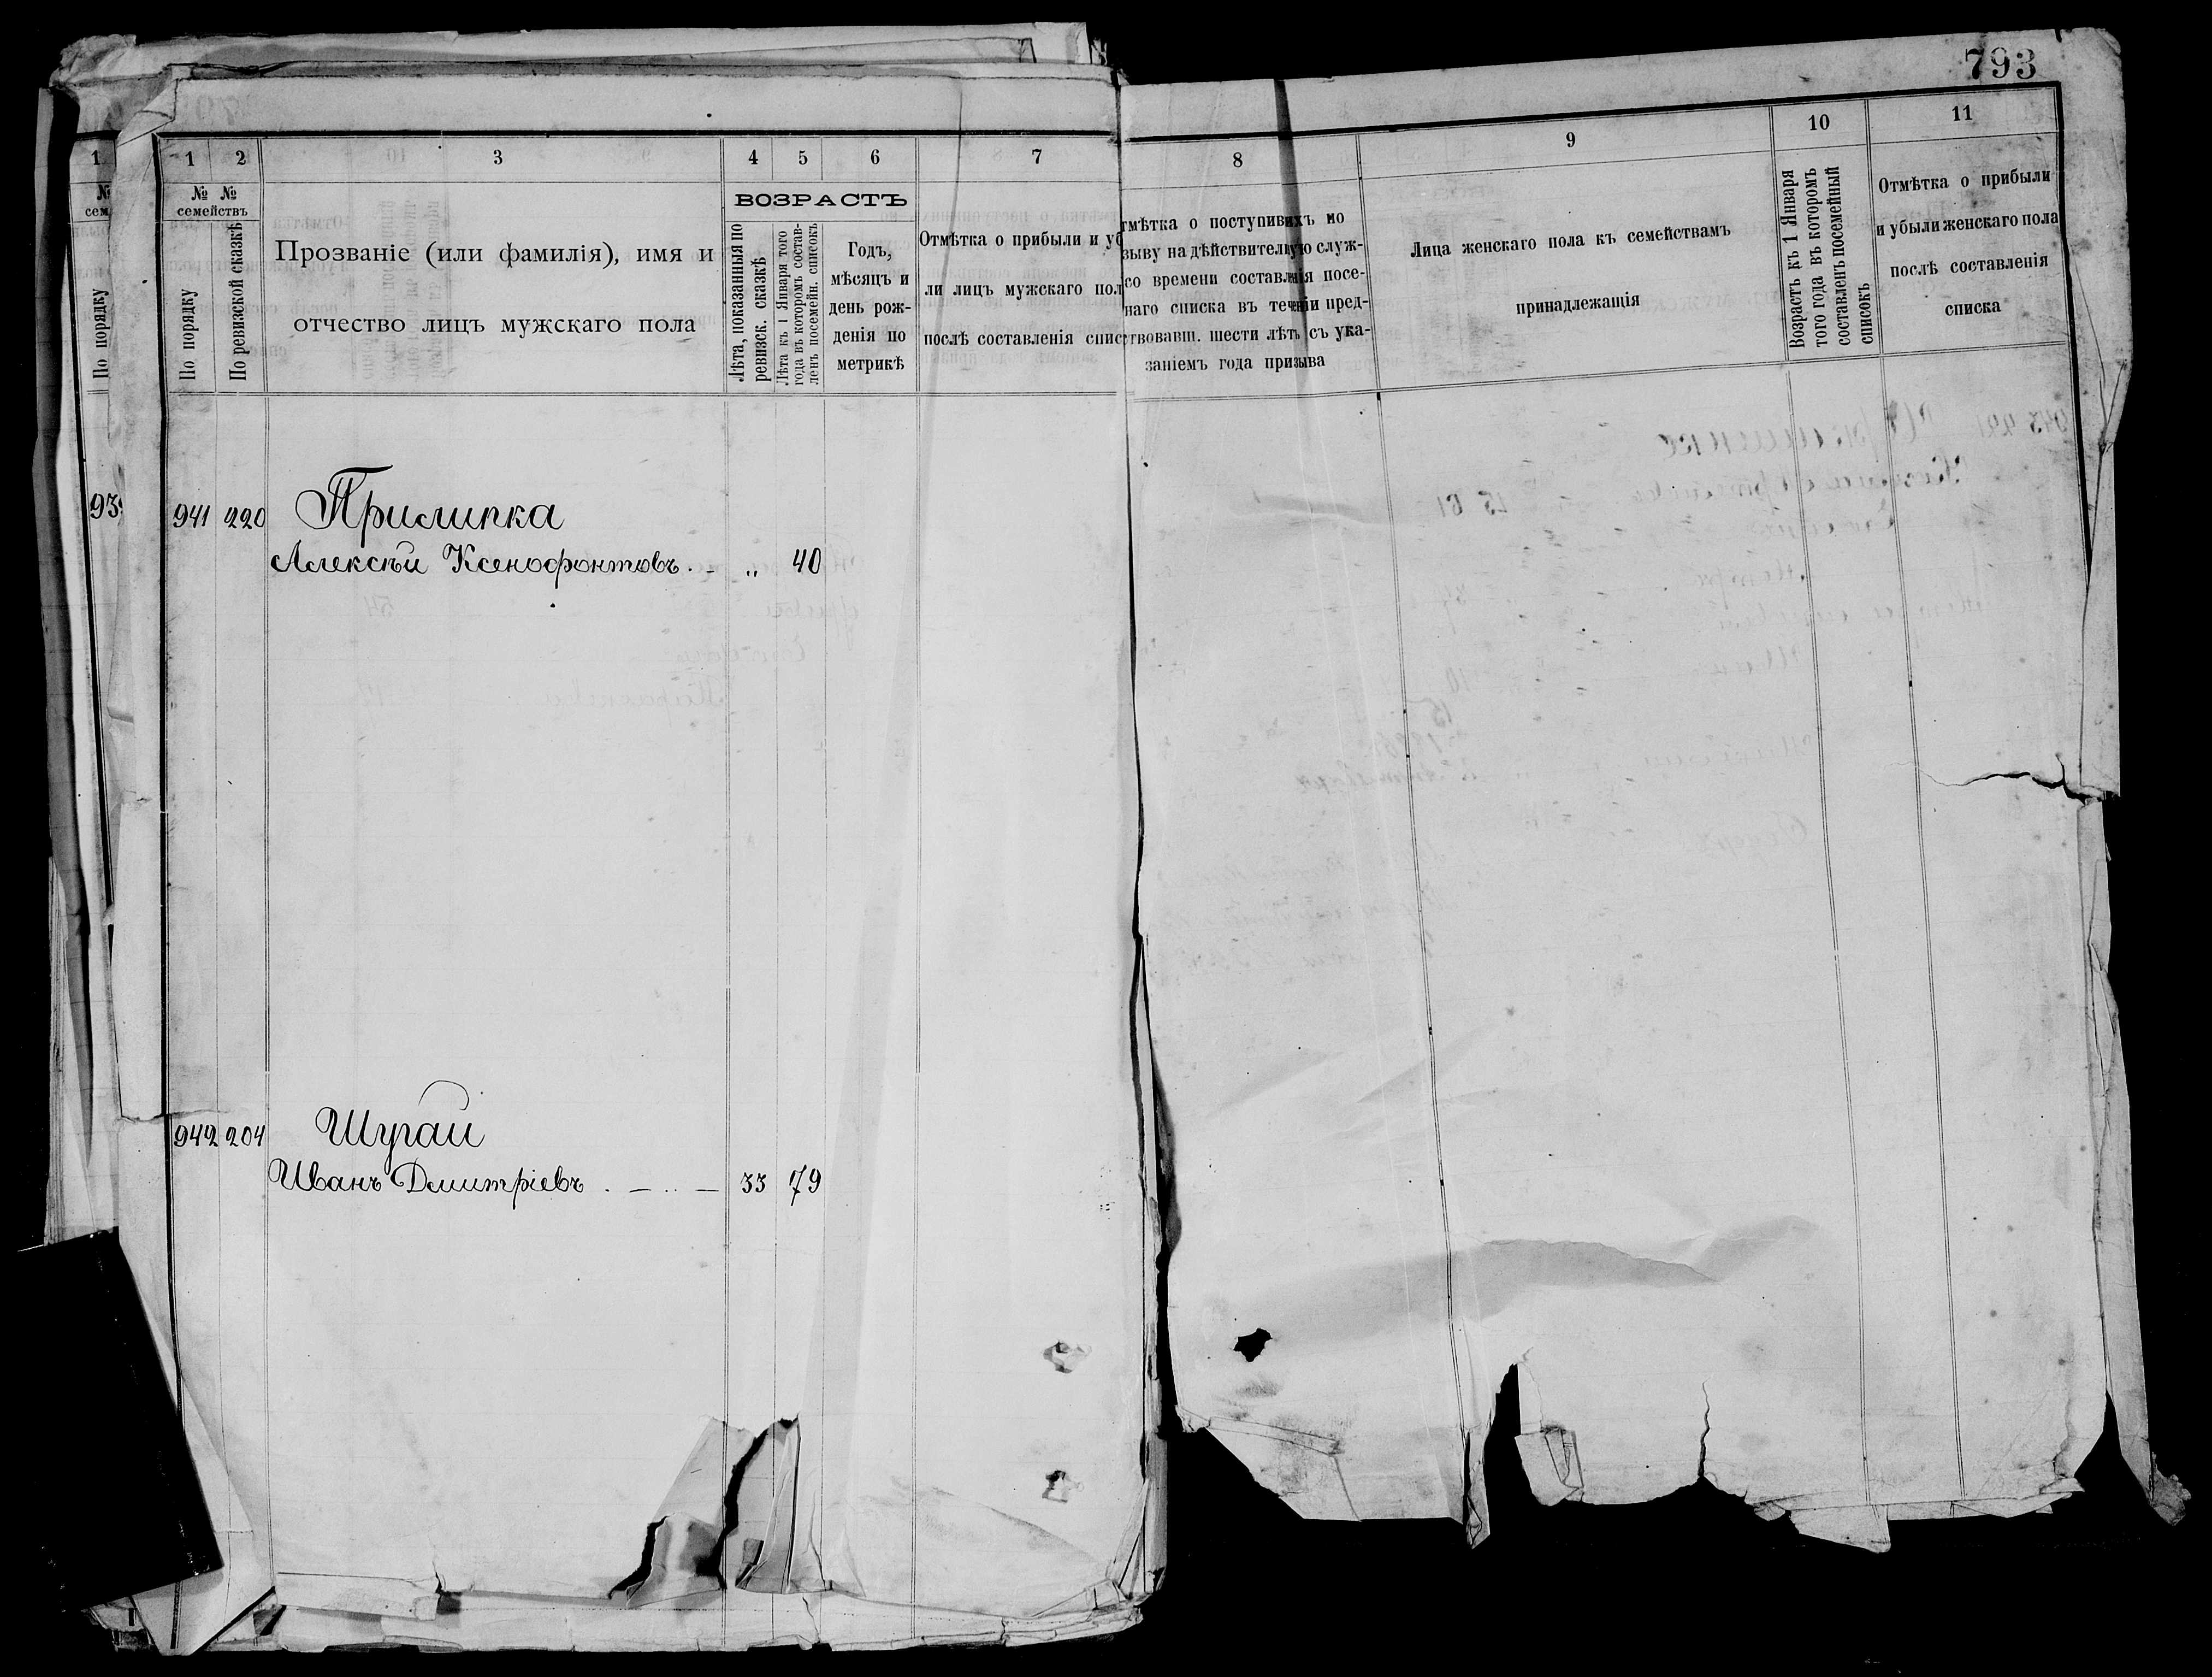 793
1 2 3 4 5 6 7
№ № семействъ
По порядку
По ревизской сказкѣ
Прозваніе (или фамилія), имя и
отчество лицъ мужскаго пола
ВОЗРАСТЪ
Лѣта, показанныя по
ревизск. сказкѣ
Лѣта къ 1 Января того
года въ которомъ состав-
ленъ посемейн. списокъ
Годъ,
мѣсяцъ и
день рож-
денія по
метрикѣ
Отмѣтка о прибыли и уб
ли лицъ мужскаго пол
послѣ составленія спис
8 9 10 11
тмѣтка о поступившихъ по
зыву на дѣйствительную служ-
со времени составленія посе-
наго списка въ теченіи пред-
твовавш. шести лѣтъ съ ука-
заніемъ года призыва
Лица женскаго пола къ семействамъ
принадлежащія
Возрастъ къ 1 Января
того года въ которомъ
составленъ посемейный
списокъ
Отмѣтка о прибыли
и убыли женскаго пола
послѣ составленія
списка
1
№
сем
По порядку
93
941 220 Прилипка
Алексѣй Ксенофонтовъ . - „ 40
942 204 Шугай
Иванъ Дмитріевъ . — .. — 33 79